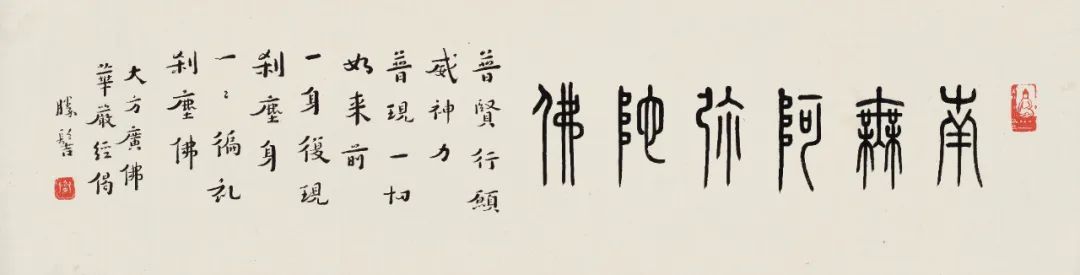 南無阿弥陀佛
普賢行願
威神力
普現一切
如来前
一身復現
刹塵身
一〻徧礼
刹塵佛
大方廣佛
華嚴经偈
勝髻